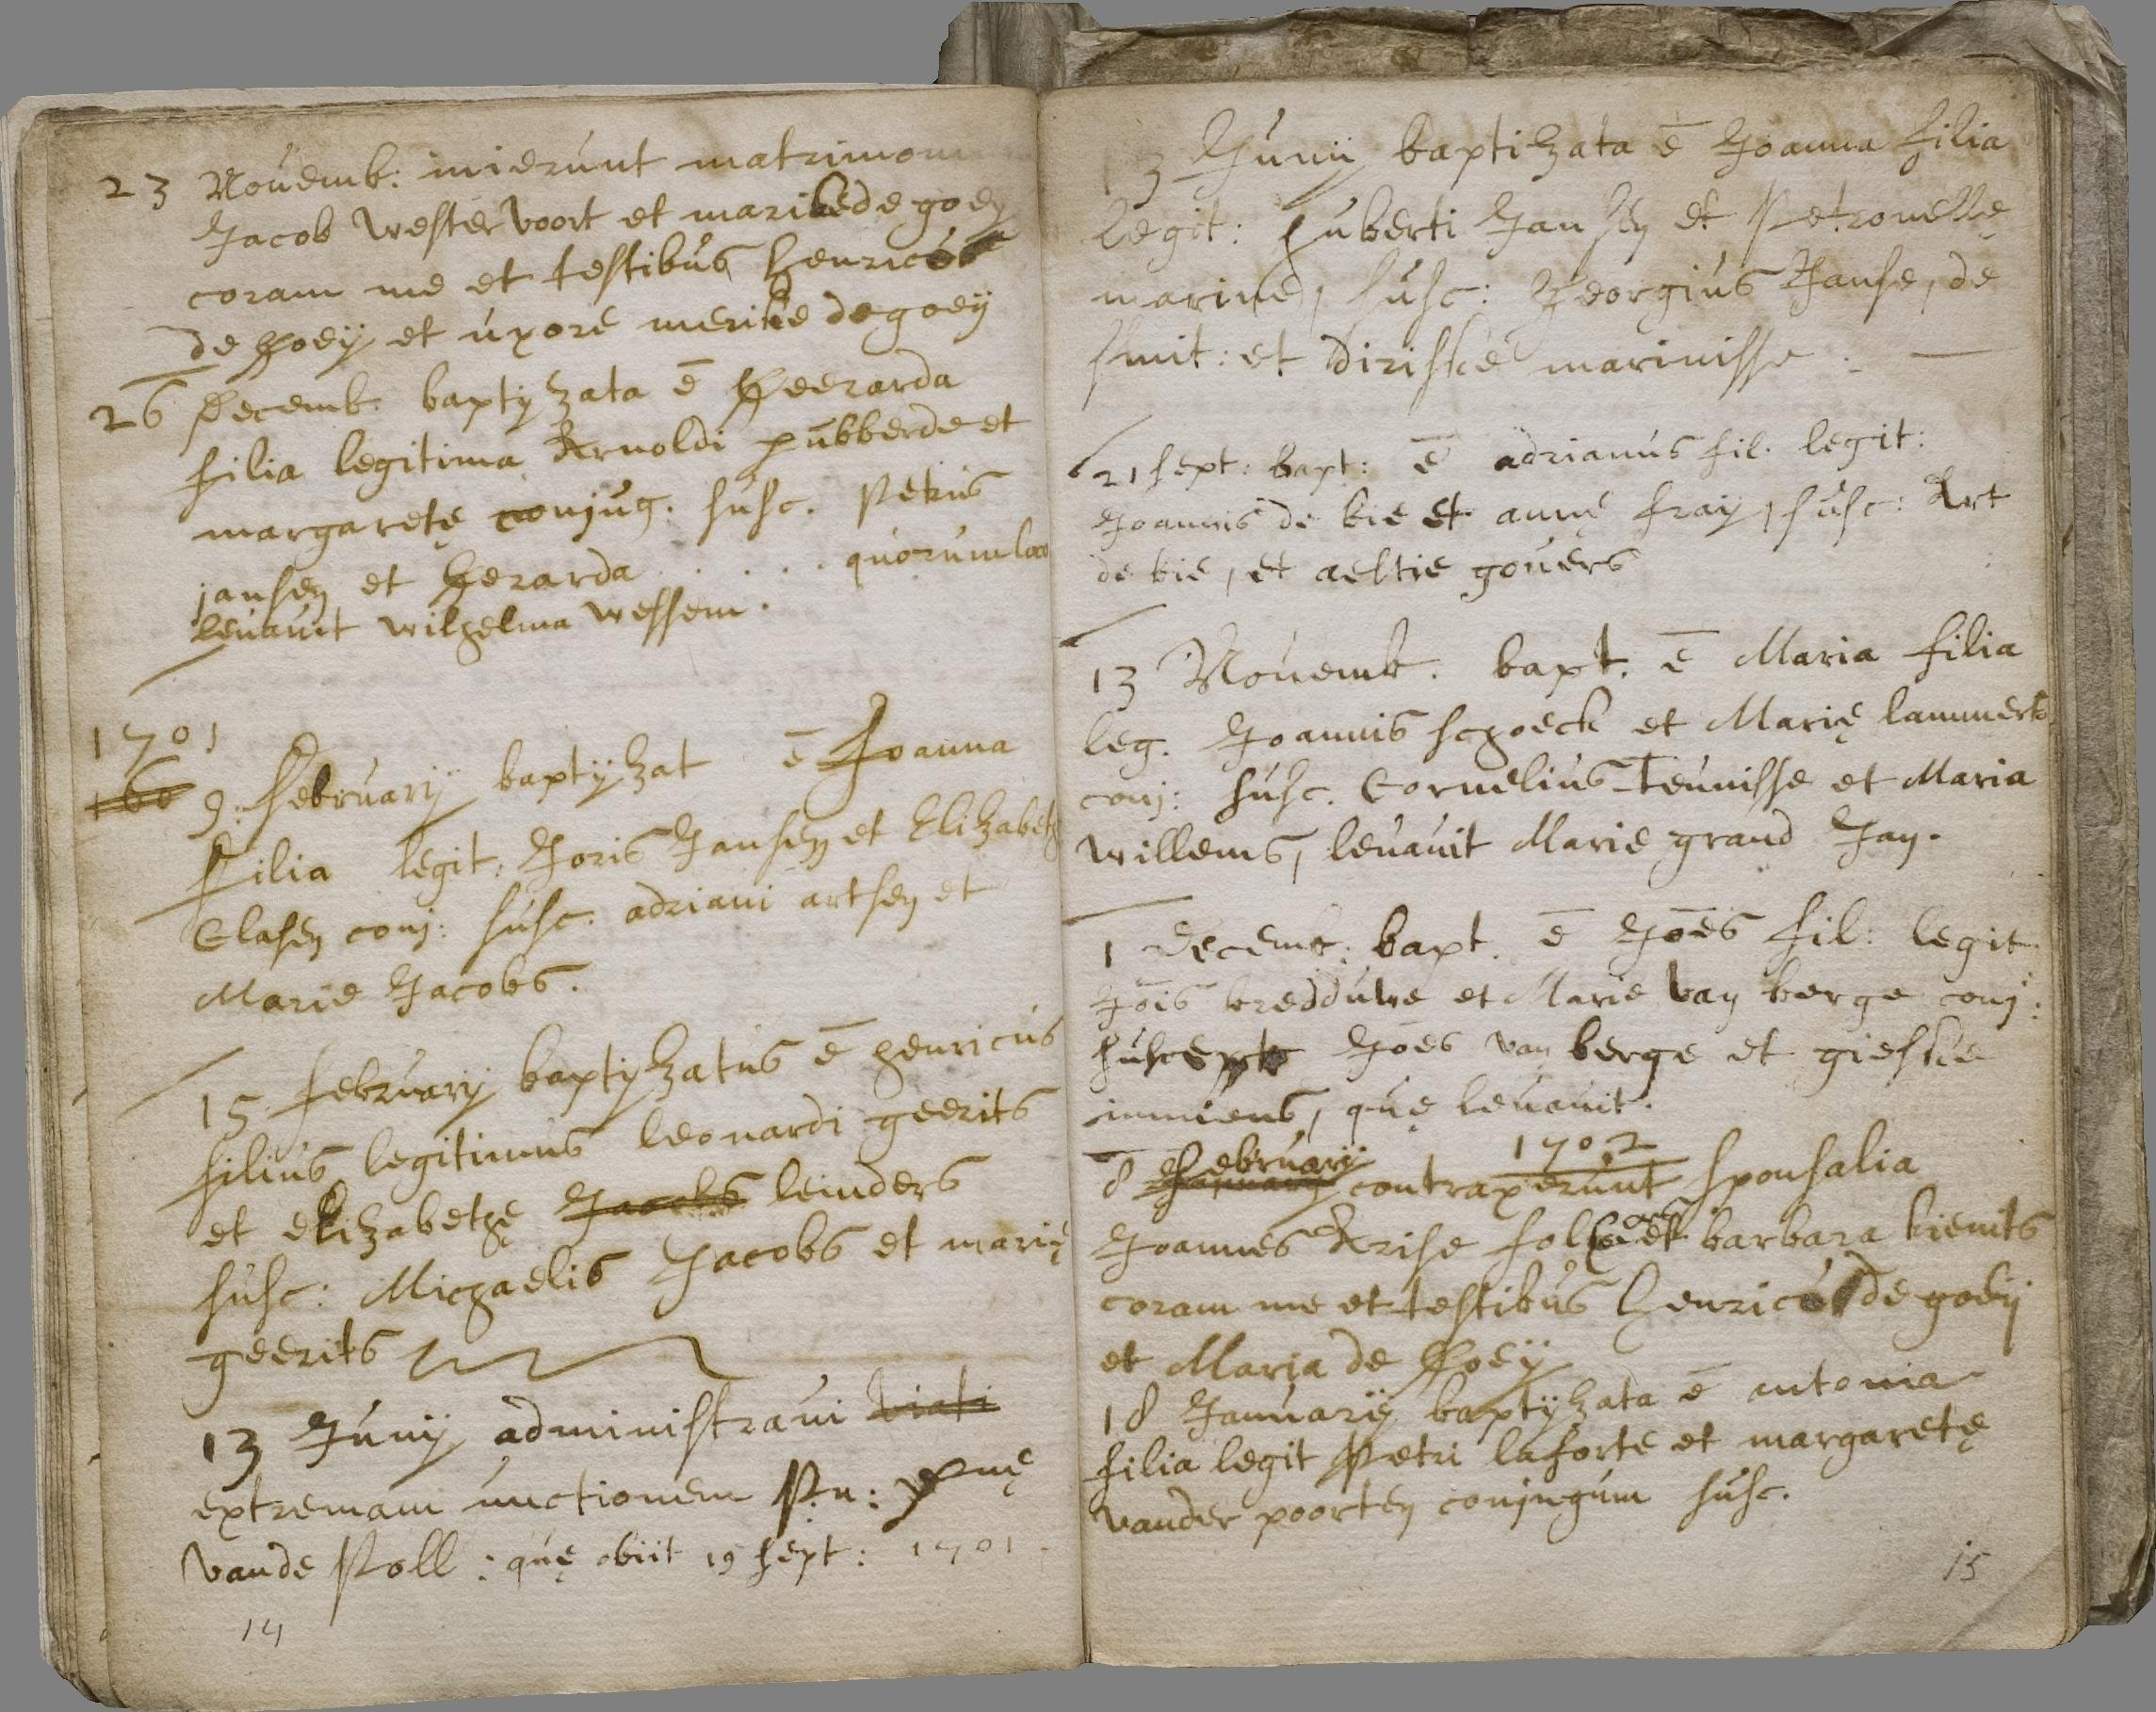 23 Novemb: inierunt matrimoni
Jacob Westervoort et marike de goeÿ
coram me et testibus henrico
de Goeÿ et uxore merike de goeÿ
26 Decemb: baptyzata ē Geerarda
filia legitima Arnoldi pubberde et
margaretę conjug. susc. Petrus
jansen et Gerarda . . . . quorum loco
levavit wilhelma Wessem.
1701
160 9: Februarÿ baptÿzat ē Joanna
Filia legit: Joris Jansen et Elizabeth
Clasen conj: susc: adriani artsen et
Marie Jacobs.
15 februarÿ baptyzatus ē henricus
filius legitimus leonardi geerits
et elizabethę Jacobs leinders
susc: Michaelis Jacobs et marię
geerits
13 Junÿ administravi viati
extremam unctionem
vande Poll: quę obiit 19 sept: 1701.
14
13 Junÿ baptizata ē Joanna filia
legit: huberti Jansen et Petronellę
marine, susc: Georgius Janse, de
smit: et diriske marinisse.
21 sept: bapt: ē adrianus fil. legit:
Joannis de bie et annę fraÿ, susc: Art
de bie, et aeltie govers
13 Novemb. bapt. ē Maria filia
leg. Joannis schoeck et Marię lammerts
conj: susc. Cornelius Teunisse et Maria
willems, levavit Marie grand Jan.
1 Decemb: bapt. ē Joēs fil: legit
Joīs bredduwe et Marie van berge conj:
suscept Joēs van berge et gieske
immiens, quę levavit.
1702
8 Januarÿ Februarÿ contraxerunt sponsalia
Joannes Arise et barbara bients
coram me et testibus henrico de goeÿ
et Maria de Goeÿ
18 Januarÿ baptÿzata ē antonia
filia legit Petri laforte et margaretę
vander poorten conjugum susc.
15